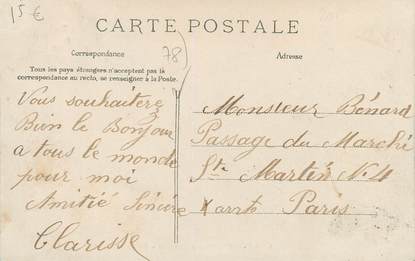 15 €
CARTE POSTALE
Correspondance
78
Adresse
Tous les pays étrangers n'acceptent pas la
correspondance au recto, se renseigner à la Poste.
Vous souhaiterez
Bien le Bonjour
a tous le monde
pour moi
Amitié Sincère
Clarisse
Monsieur Bénard
Passage du Marché
St Martin N 4
X arrt Paris